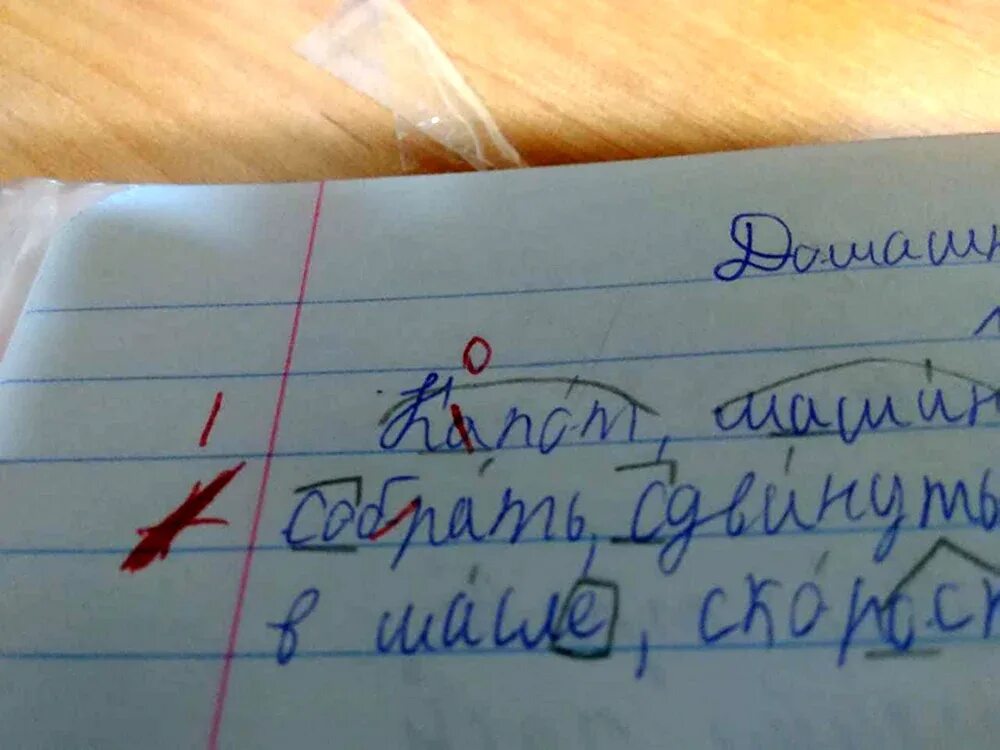 Домашн
о
| Капот, машин
собрать, сдвинуть
в масле, скорос